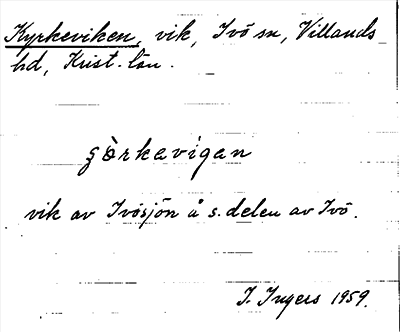 Kyrkeviken, vik, Ivö sn, Villands
hd, Krist. län.
şö̀rkavigan
vik av Ivösjön å s. delen av Ivö.
I. Ingers 1959.